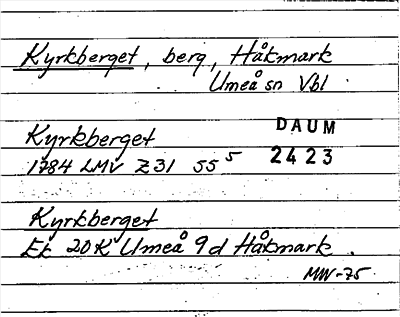 Kyrkberget, berg, Håkmark
Umeå sn Vbl.
Kyrkberget
DAUM
1784 LMV Z31 55⁵
2423
Kyrkberget
Ek 20K Umeå 9d Håkmark.
MW-75